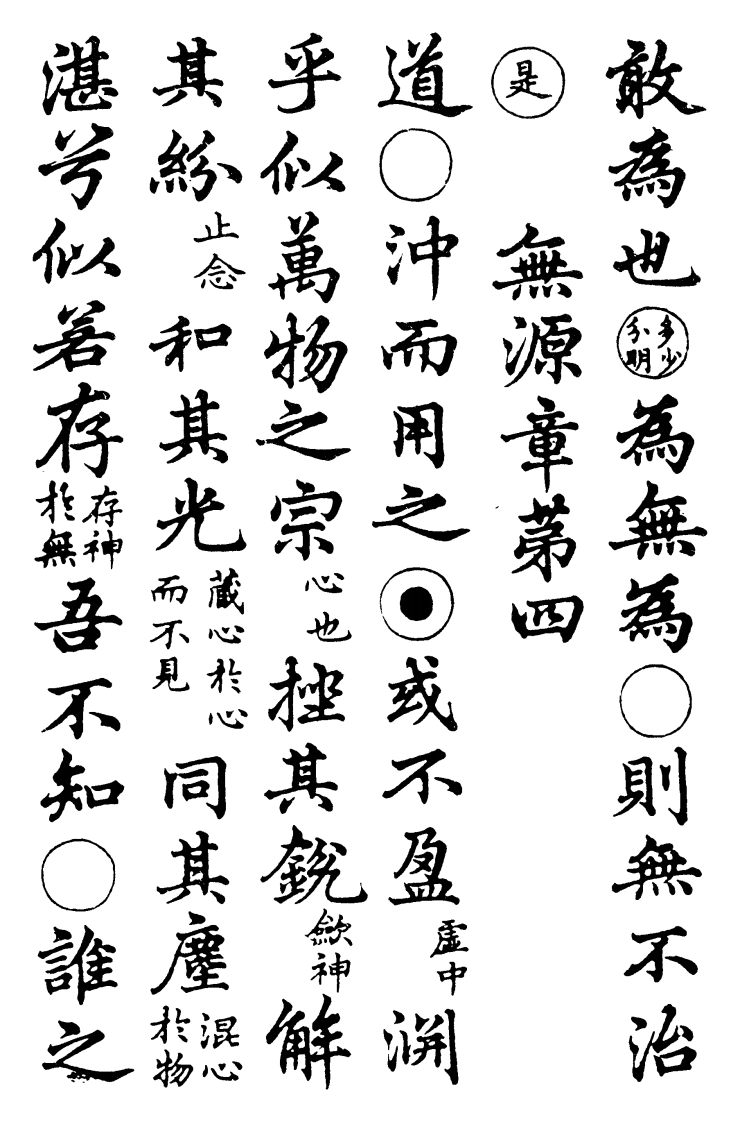 敢為也多少分明為無為○則無不治
是　無源章第四
道○沖而用之☉或不盈虛中淵
乎似萬物之宗心也挫其銳斂神解
其紛止念和其光藏心於心而不見同其塵混心於物
湛兮似若存存神於無吾不知○誰之